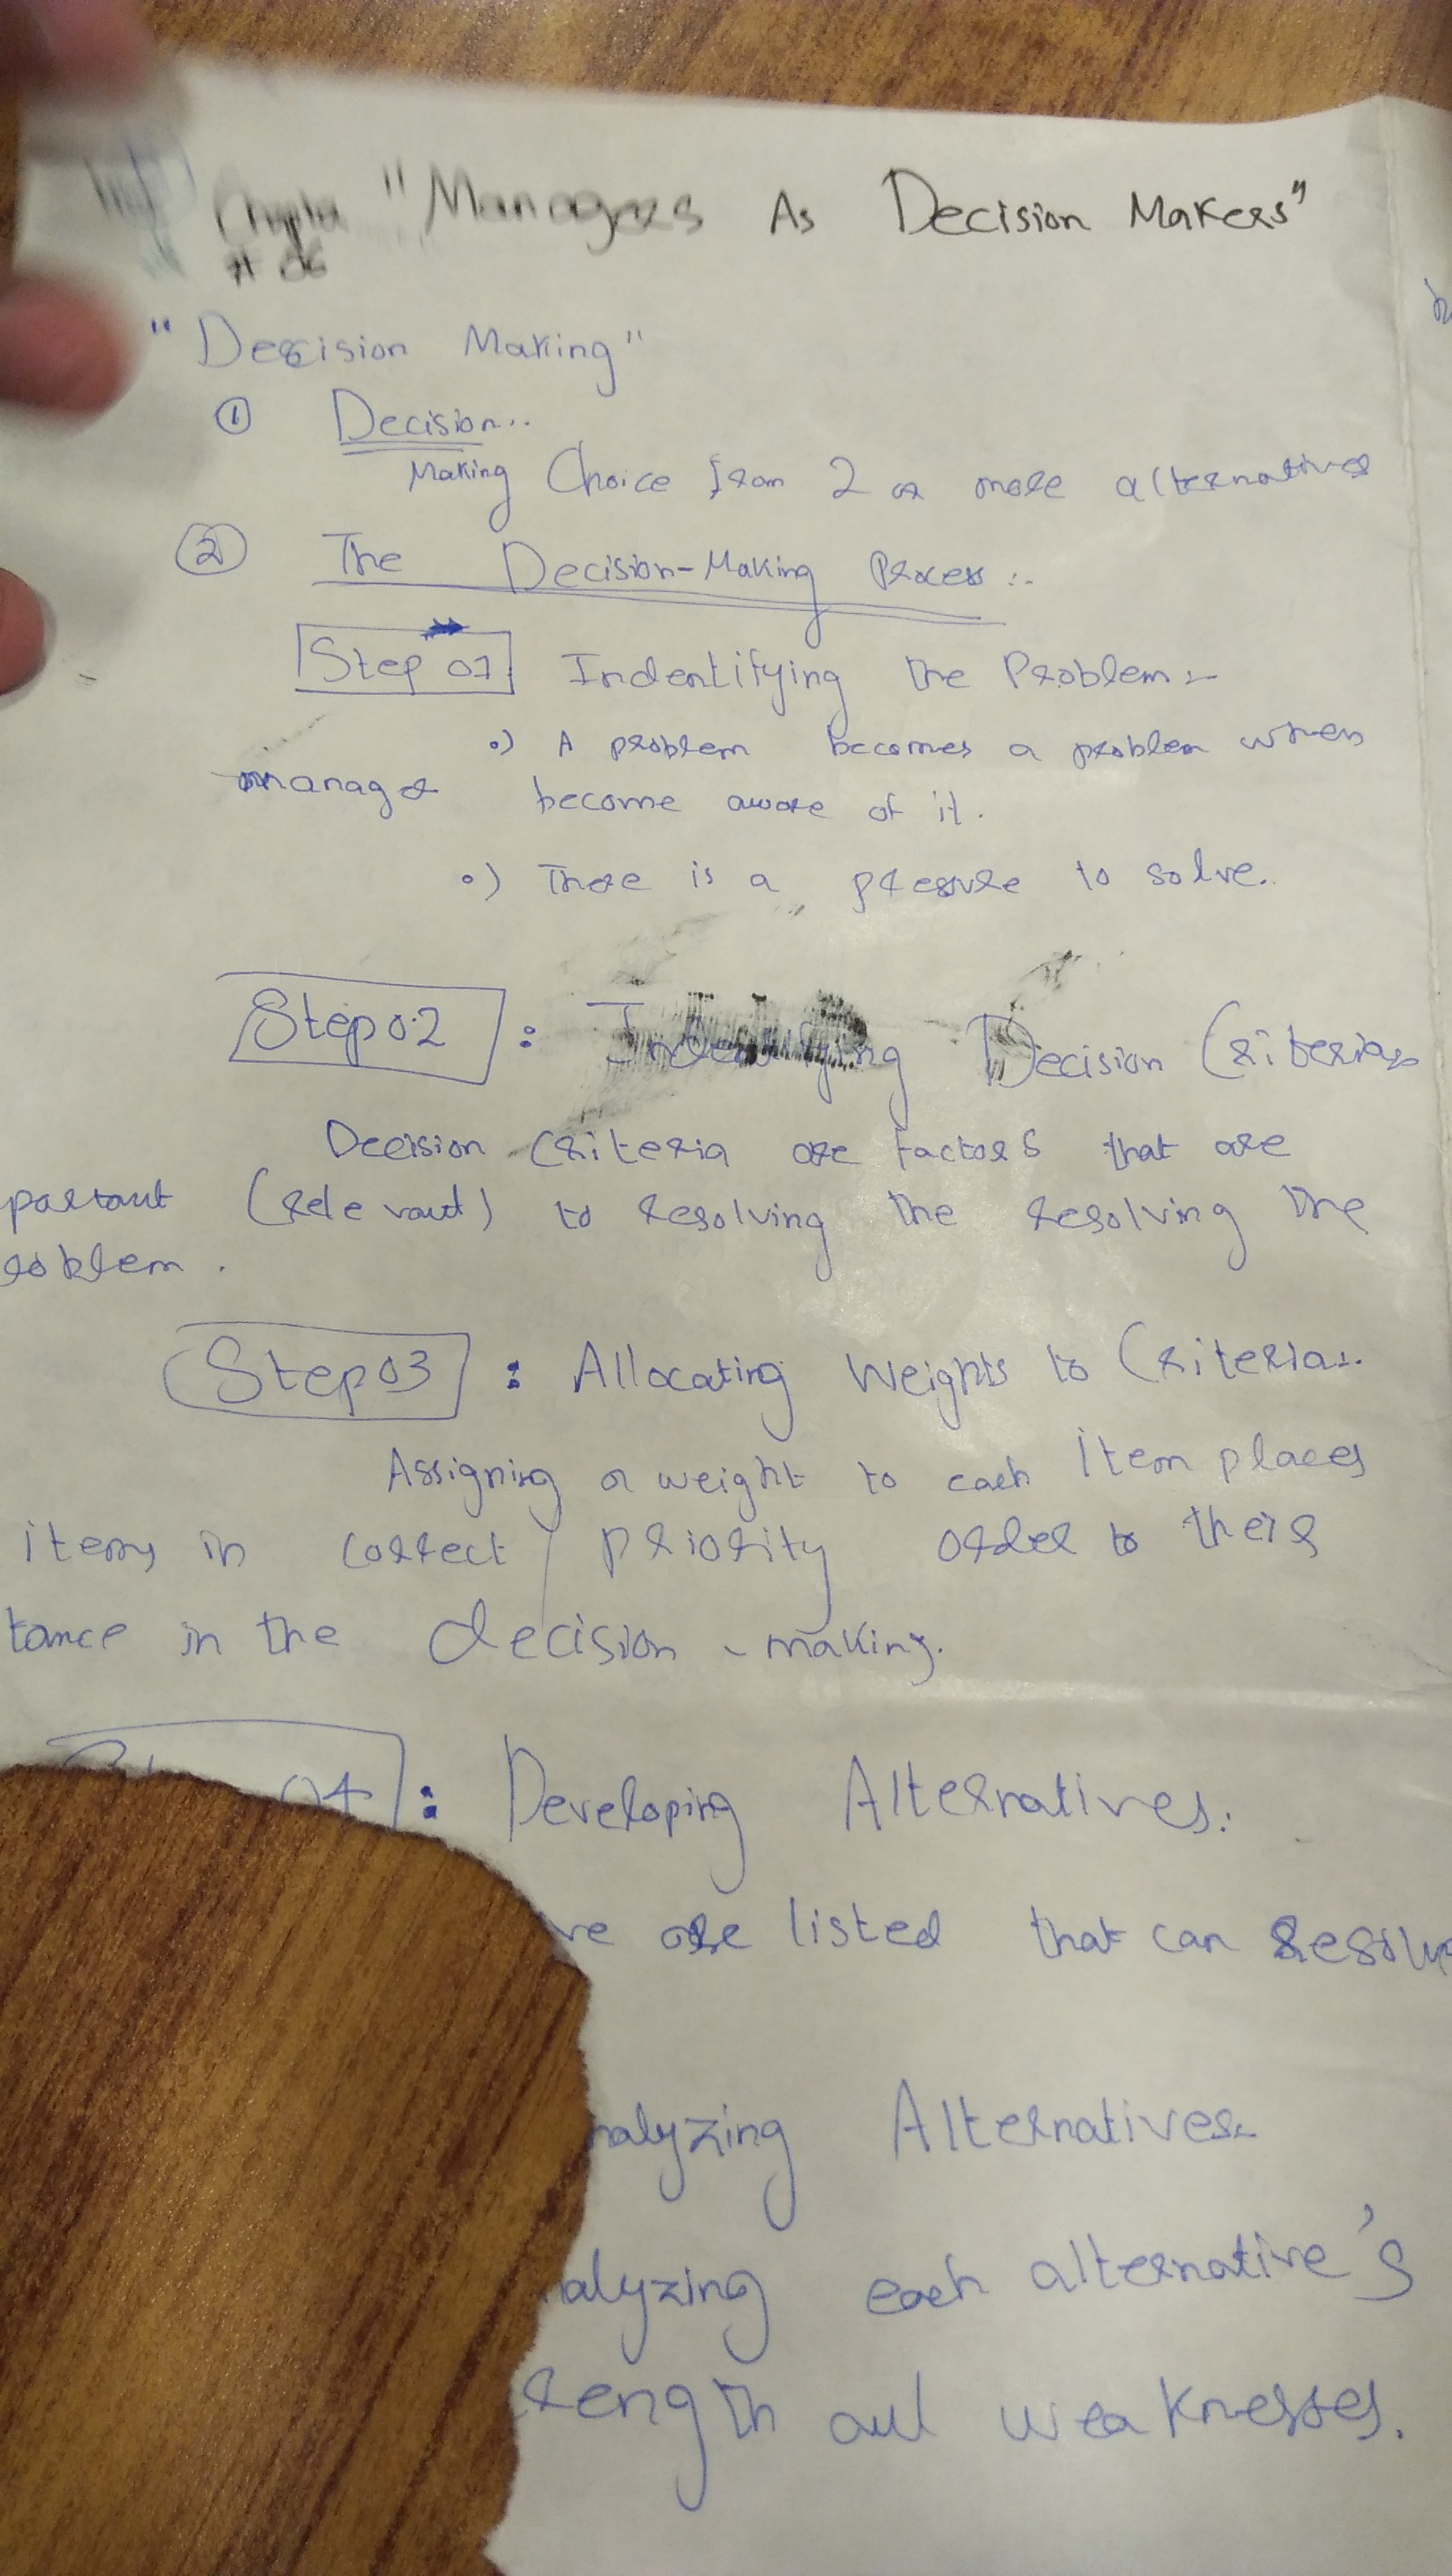 Chapter "Managers As Decision Makers"
# 06
"Decision Making"
① Decision..
Making Choice from 2 or more alternatives
② The Decision-Making Process :.
Step 01 Indentifying the Problem :-
•) A problem becomes a problem when
manager become aware of it.
•) There is a pressure to solve.
Step 02 : Indentifying Decision Criteria
Decision Criteria are factors that are
portant (relevant) to resolving the resolving the
roblem .
Step 03 : Allocating Weights to Criteria:.
Assigning a weight to each item places
items in correct priority order to their
tance in the decision - making.
04 : Developing Alternatives:
ve are listed that can resolve
nalyzing Alternatives:-
alyzing each alternative's
rength and weaknesses.